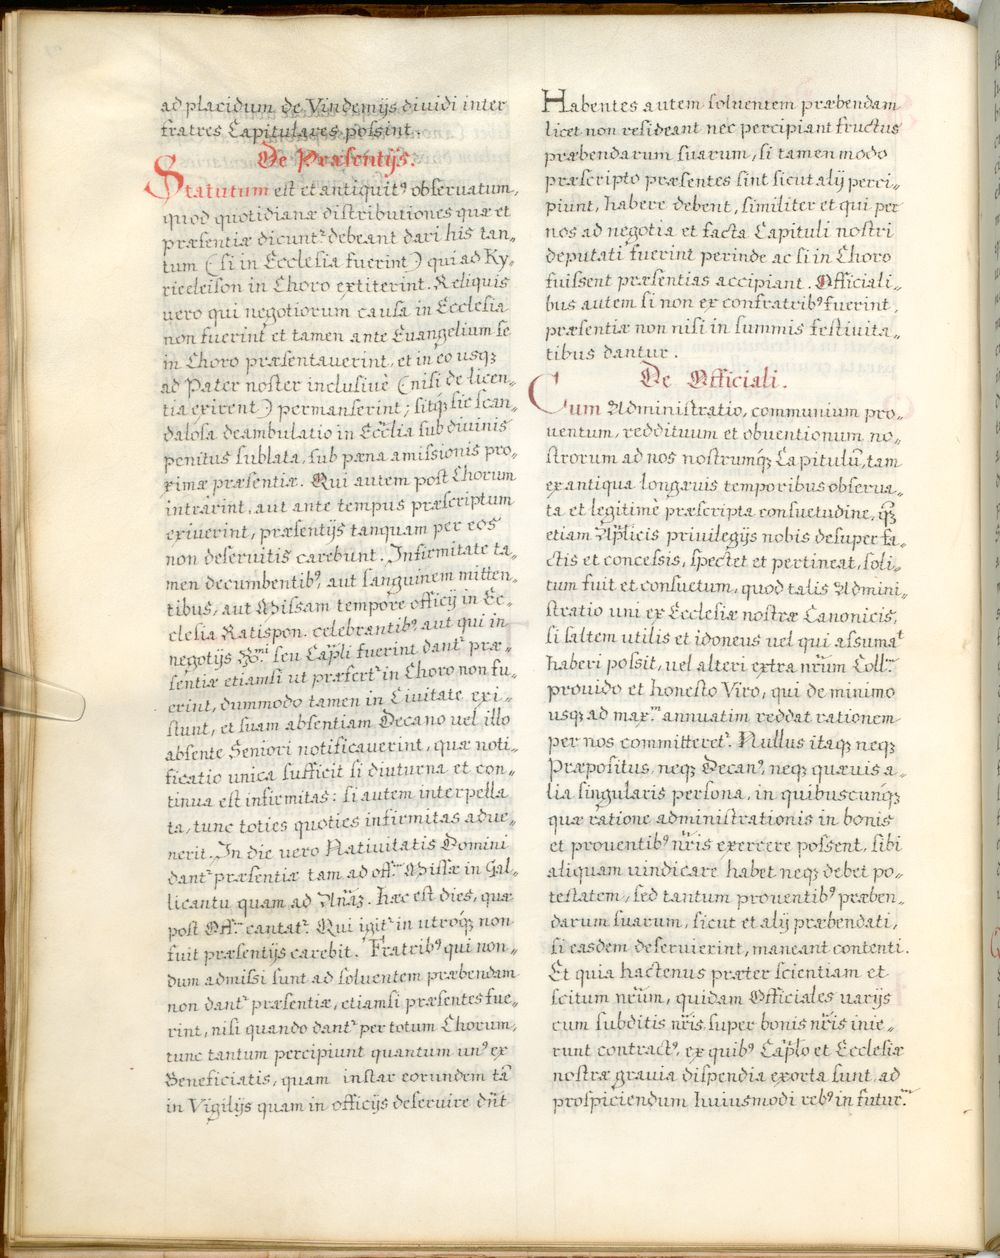 ad placidum de Vindemijs diuidi inter
fratres Capitulares possint.
De Præsentijs.
Statutum est et antiquitꝰ obseruatum,
quod quotidianæ distributiones quæ et
præsentiæ dicunt᷑ debeant dari his tan„
tum (si in Ecclesia fuerint) qui ad Ky„
rieeleison in Choro extiterint. Reliquis
uero qui negotiorum causa in Ecclesia
non fuerint et tamen ante Euangelium se
in Choro præsentauerint, et in eo usqꝫ
ad Pater noster inclusiuè (nisi de licen„
tia exirent) permanserint; sitqꝫ sic scan„
dalosa deambulatio in Eccl̃ia sub diuinis
penitus sublata, sub pæna amissionis pro„
ximæ præsentiæ. Qui autem post Chorum
intrarint, aut ante tempus præscriptum
exiuerint, præsentijs tanquam per eos
non deseruitis carebunt. Infirmitate ta„
men decumbentibꝰ, aut sanguinem mitten„
tibus, aut Missam tempore officij in Ec„
clesia Ratispon. celebrantibꝰ aut qui in
negotijs seu Cap̃li fuerint dant᷑ præ„
sentiæ etiamsi ut præfert᷑ in Choro non fu„
erint, dummodo tamen in Ciuitate exi„
stunt, et suam absentiam Decano uel illo
absente Seniori notificauerint, quæ noti„
ficatio unica sufficit si diuturna et con„
tinua est infirmitas: si autem interpella
ta, tunc toties quoties infirmitas adue„
nerit. In die uero Natiuitatis Domini
dant᷑ præsentiæ tam ad off.m Missæ in Gal„
licantu quam ad Hæc est dies, quæ
post Off.m cantat᷑. Qui igit᷑ in utroqꝫ non
fuit præsentijs carebit. Fratribꝰ qui non„
dum admissi sunt ad soluentem præbendam
non dant᷑ præsentiæ, etiamsi præsentes fue„
rint, nisi quando dant᷑ per totum Chorum,
tunc tantum percipiunt quantum unꝰ ex
Beneficiatis, quam instar eorundem tã
in Vigilijs quam in officijs deseruire dñt
Habentes autem soluentem præbendam
licet non resideant nec percipiant fructus
præbendarum suarum, si tamen modo
præscripto præsentes sint sicut alij perci„
piunt, habere debent, similiter et qui per
nos ad negotia et facta Capituli nostri
deputati fuerint perinde ac si in Choro
fuissent præsentias accipiant. Officiali„
bus autem si non ex confratribꝰ fuerint,
præsentiæ non nisi in summis festiuita„
tibus dantur.
De Officiali.
Cum Administratio, communium pro„
uentum, reddituum et obuentionum no„
strorum ad nos nostrumqꝫ Capitulũ, tam
ex antiqua longæuis temporibus obserua„
ta et legitimè præscripta consuetudine, qꝫ
etiam Ap̃licis priuilegijs nobis desuper fa„
ctis et concessis, spectet et pertineat, soli„
tum fuit et consuetum, quod talis Admini„
stratio uni ex Ecclesiæ nostræ Canonicis,
si saltem utilis et idoneus uel qui assumat
haberi possit, uel alteri extra nr̃um Coll.m
prouido et honesto Viro, qui de minimo
usqꝫ ad max.m annuatim reddat rationem
per nos committeret᷑. Nullus itaqꝫ neqꝫ
Præpositus, neqꝫ Decanꝰ, neqꝫ quæuis a„
lia singularis persona, in quibuscunqꝫ
quæ ratione administrationis in bonis
et prouentibꝰ nr̃is exercere possent, sibi
aliquam uindicare habet neqꝫ debet po„
testatem, sed tantum prouentibꝰ præben„
darum suarum, sicut et alij præbendati,
si easdem deseruierint, maneant contenti.
Et quia hactenus præter scientiam et
scitum nr̃um, quidam Officiales uarijs
cum subditis nr̃is super bonis nr̃is inie„
runt contractꝰ, ex quibꝰ Cap̃lo et Ecclesiæ
nostræ grauia dispendia exorta sunt, ad
prospiciendum huiusmodi rebꝰ in futur.m